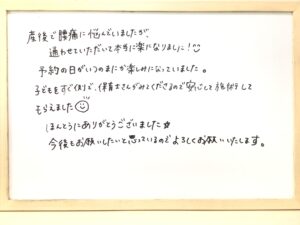 産後で腰痛に悩んでいましたが、
通わせていただいて本当に楽になりました！
予約の日がいつのまにか楽しみになっていました。
子どももすぐ側で、保育士さんがみてくださるので安心して施術して
もらえました
ほんとうにありがとうございました☆
今後もお願いしたいと思っているのでよろしくお願いいたします。